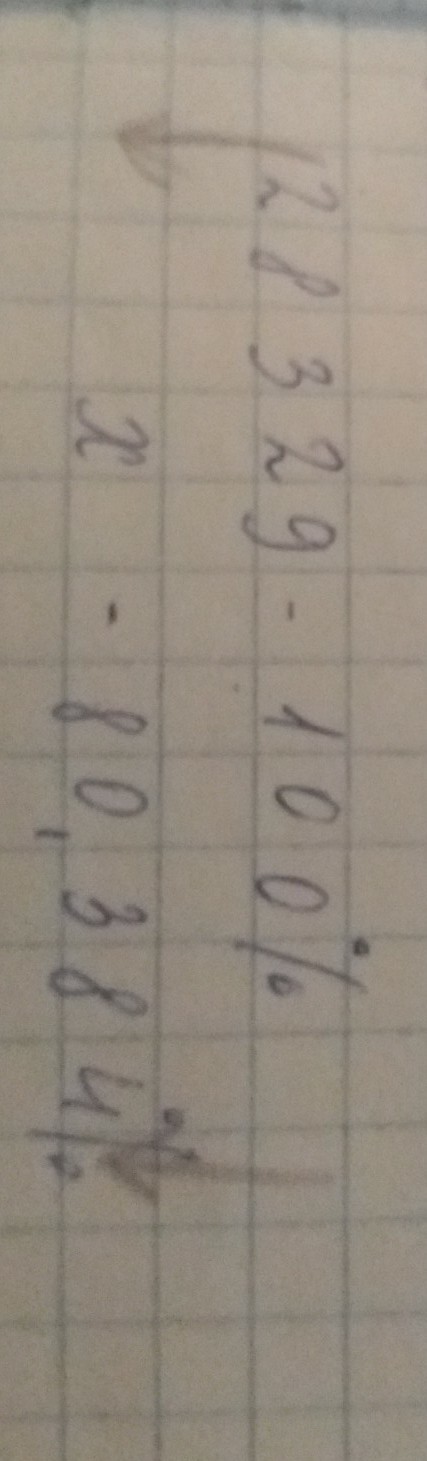 28329 - 100%
x - 80,384%